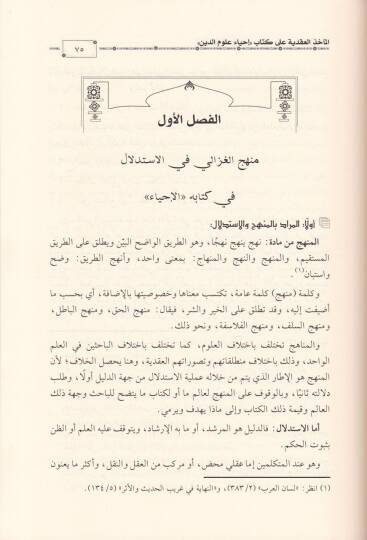 المآخذ العقدية على كتاب «إحياء علوم الدين»
٧٥
الفصل الأول
منهج الغزالي في الاستدلال
في كتابه «الإحياء»
أولًا: المراد بالمنهج والاستدلال:
المنهج من مادة: نهج ينهج نهجًا، وهو الطريق الواضح البيّن ويطلق على الطريق
المستقيم، والمنهج والنهج والمنهاج: بمعنى واحد، وأنهج الطريق: وضح
واستبان(١).
وكلمة (منهج) كلمة عامة، تكتسب معناها وخصوصيتها بالإضافة، أي بحسب ما
أضيفت إليه، وقد تطلق على الخير والشر، فيقال: منهج الحق، ومنهج الباطل،
ومنهج السلف، ومنهج الفلاسفة، ونحو ذلك.
والمناهج تختلف باختلاف العلوم، كما تختلف باختلاف الباحثين في العلم
الواحد، وذلك باختلاف منطلقاتهم وتصوراتهم العقدية، وهنا يحصل الخلاف؛ لأن
المنهج هو الإطار الذي يتم من خلاله عملية الاستدلال من جهة الدليل أولًا، وطلب
دلالته ثانيًا، وبالوقوف على المنهج لعالم ما أو لكتاب ما يتضح للباحث وجهة ذلك
العالم وقيمة ذلك الكتاب وإلى ماذا يهدف ويرمي.
أما الاستدلال: فالدليل هو المرشد، أو ما به الإرشاد، ويتوقف عليه العلم أو الظن
بثبوت الحكم.
وهو عند المتكلمين إما عقلي محض، أو مركب من العقل والنقل، وأكثر ما يعنون
(١) انظر: «لسان العرب» (٣٨٣/٢)، و«النهاية في غريب الحديث والأثر» (١٣٤/٥).